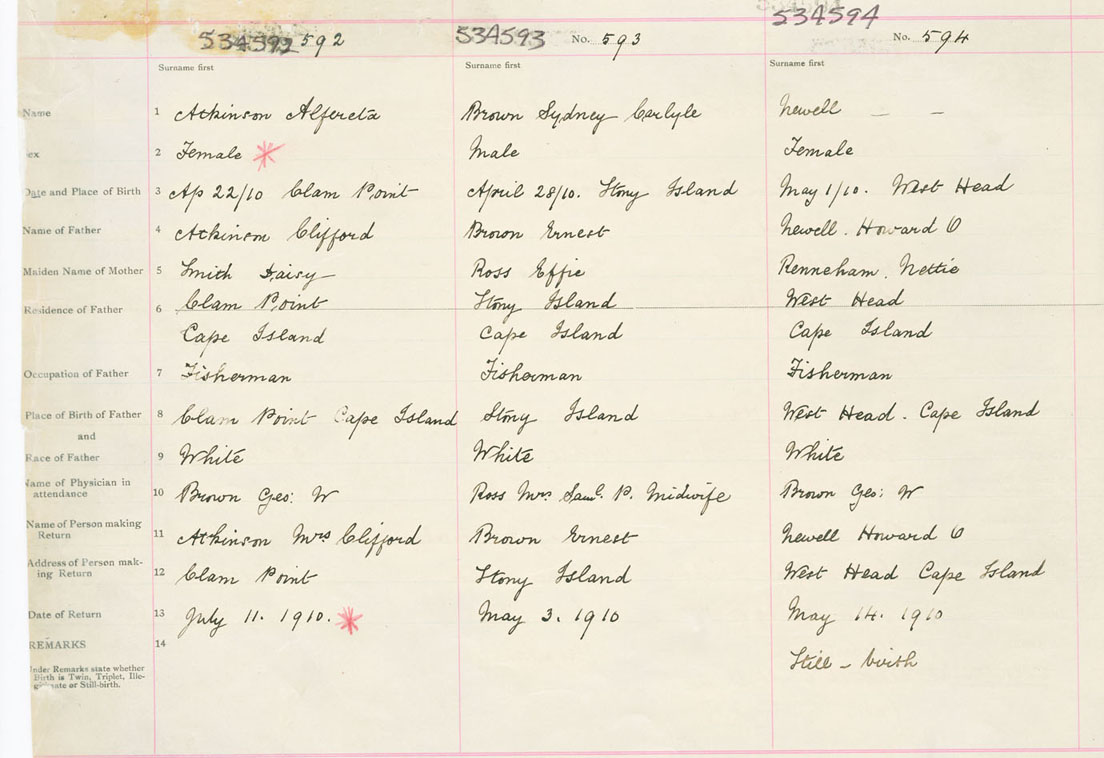 534592 592 534593 No. 593 534594 No. 594
Surname first Surname first Surname first
Name 1 Atkinson Alfereta Brown Sydney Carlyle Newell — —
ex 2 Female Male Female
Date and Place of Birth 3 Ap 22/10 Clam Point April 28/10. Stony Island May 1/10. West Head
Name of Father 4 Atkinson Clifford Brown Ernest Newell. Howard O
Maiden Name of Mother 5 Smith Daisy Ross Effie Renneham. Nettie
Residence of Father 6 Clam Point Stony Island West Head
Cape Island Cape Island Cape Island
Occupation of Father 7 Fisherman Fisherman Fisherman
Place of Birth of Father 8 Clam Point Cape Island Stony Island West Head. Cape Island
and
Race of Father 9 White White White
Name of Physician in
attendance 10 Brown Geo: W Ross Mrs Saml. P. Midwife Brown Geo: W
Name of Person making
Return 11 Atkinson Mrs Clifford Brown Ernest Newell Howard O
Address of Person mak-
ing Return 12 Clam Point Stony Island West Head Cape Island
Date of Return 13 July 11. 1910. May 3. 1910 May 14. 1910
REMARKS 14
Under Remarks state whether
Birth is Twin, Triplet, Ille-
gitimate or Still-birth.
Still - birth